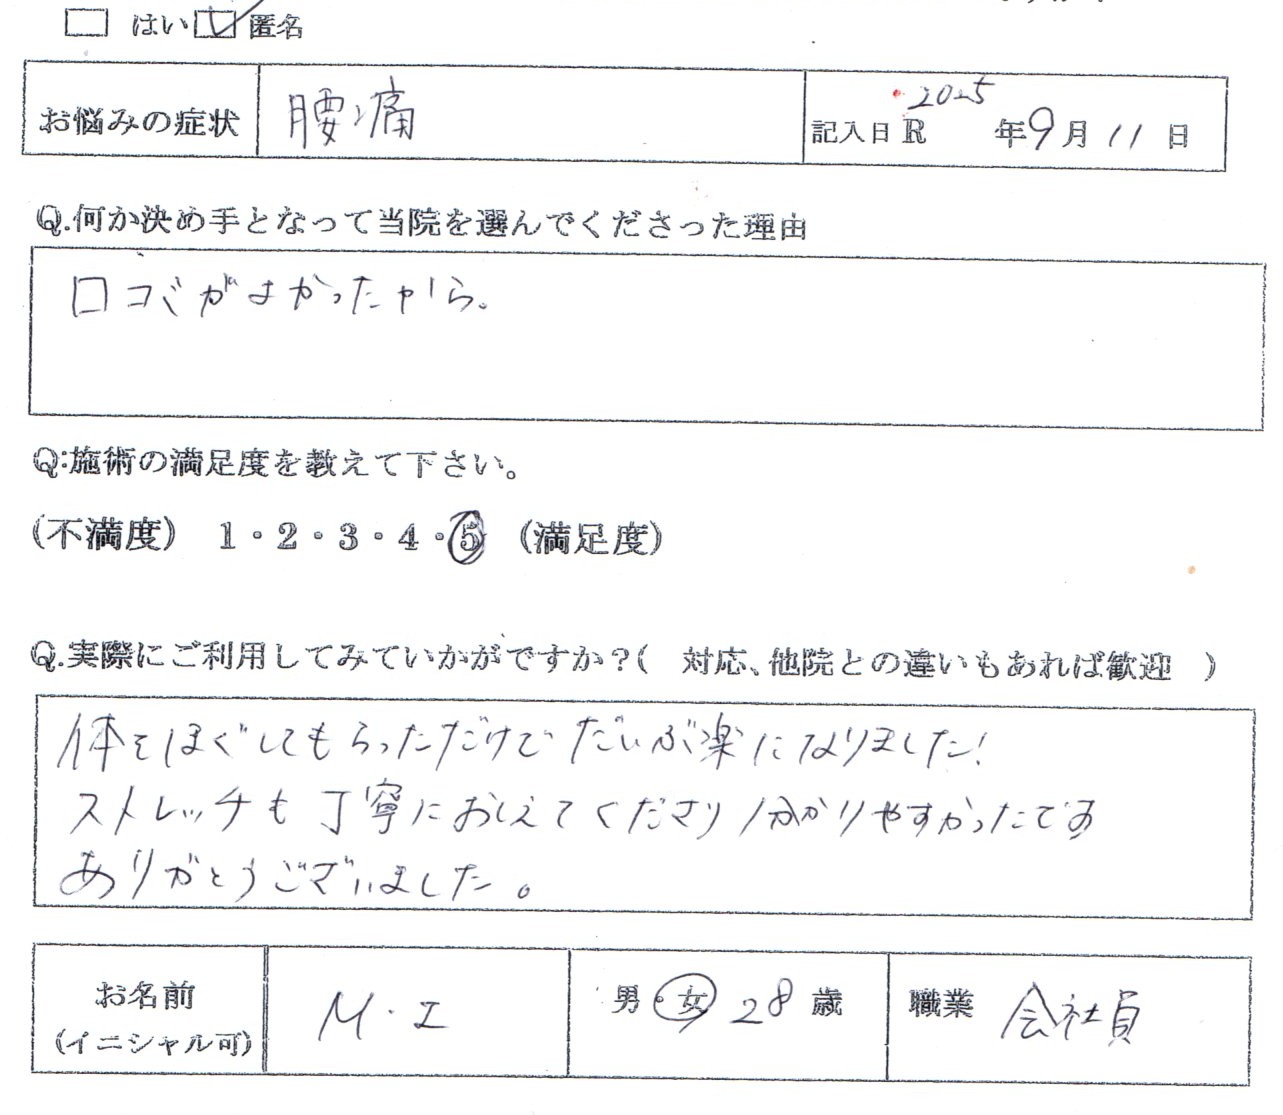 はい 匿名
お悩みの症状 腰痛 記入日 R 2025 年 9 月 11 日
Q.何か決め手となって当院を選んでくださった理由
口コミがよかったから。
Q:施術の満足度を教えて下さい。
(不満度) 1・2・3・4・5 (満足度)
Q.実際にご利用してみていかがですか?( 対応、他院との違いもあれば歓迎 )
体をほぐしてもらっただけでだいぶ楽になりました!
ストレッチも丁寧におしえてくださり分かりやすかったです
ありがとうございました。
お名前 (イニシャル可) M・I 男・女 28 歳 職業 会社員